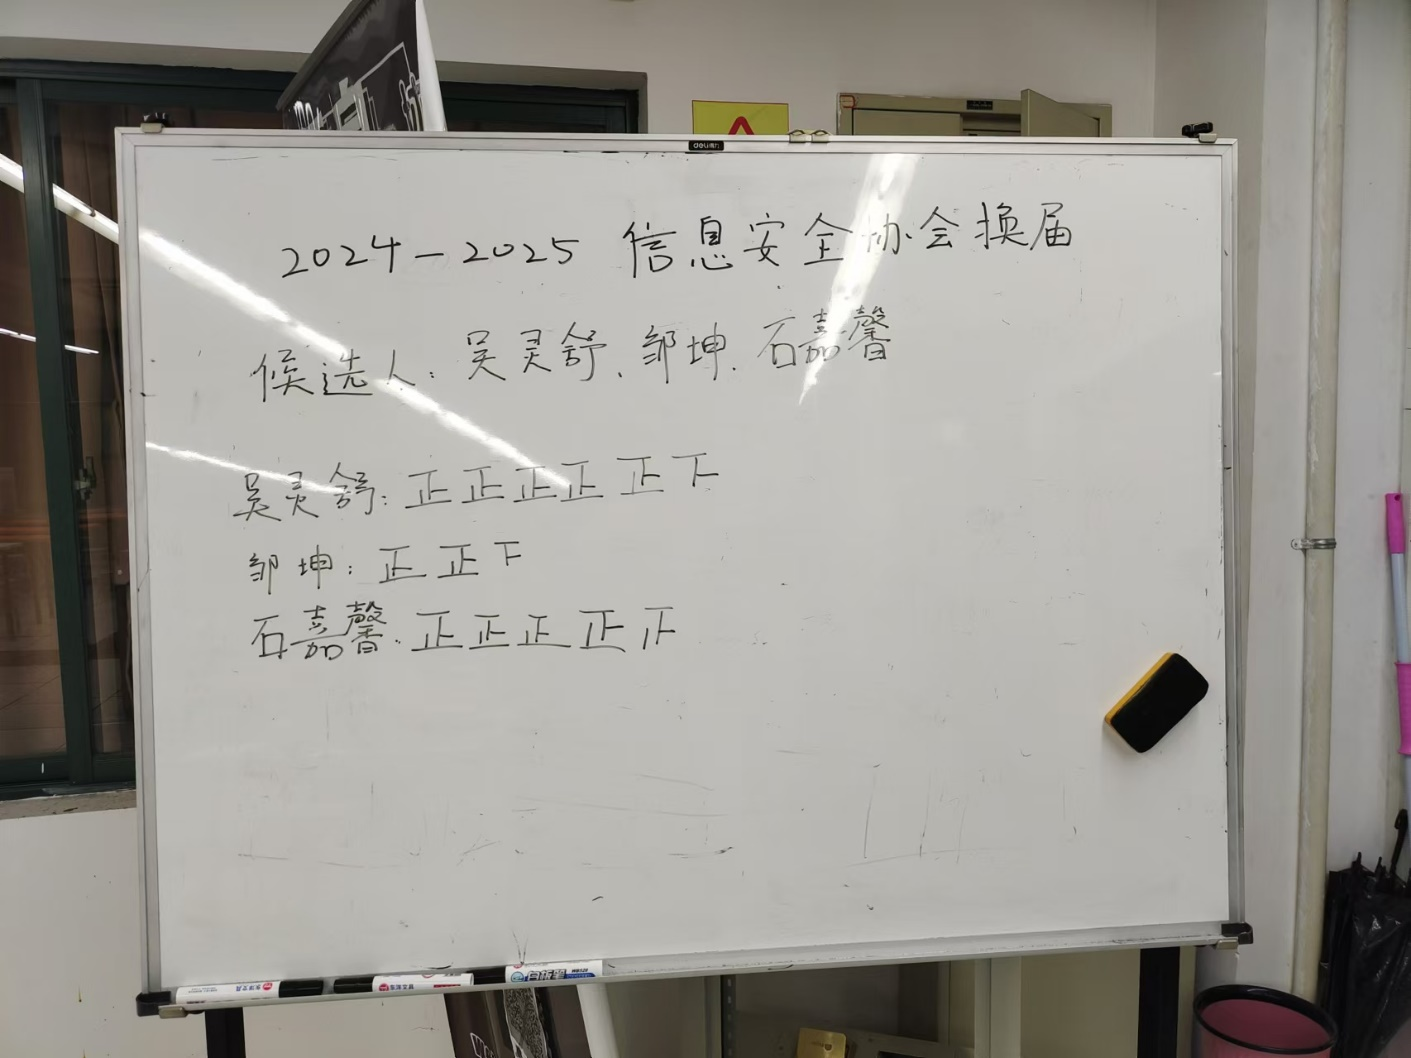 deli得力
2024-2025 信息安全协会换届
候选人：吴灵舒、邹坤、石嘉馨
吴灵舒：正正正正正下
邹坤：正正下
石嘉馨：正正正正正